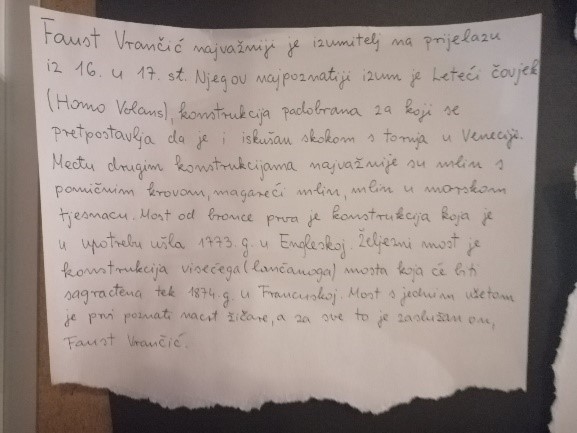 Faust Vrančić najvažniji je izumitelj na prijelazu
iz 16. u 17. st. Njegov najpoznatiji izum je Leteći čovjek
(Homo Volans), konstrukcija padobrana za koji se
pretpostavlja da je i iskušan skokom s tornja u Veneciji.
Među drugim konstrukcijama najvažnije su mlin s
pomičnim krovom, magareći mlin, mlin u morskom
tjesnacu. Most od bronce prva je konstrukcija koja je
u upotrebu ušla 1773. g. u Engleskoj. Željezni most je
konstrukcija visećega (lančanoga) mosta koja će biti
sagrađena tek 1874. g. u Francuskoj. Most s jednim užetom
je prvi poznati nacrt žičare, a za sve to je zaslužan on,
Faust Vrančić.